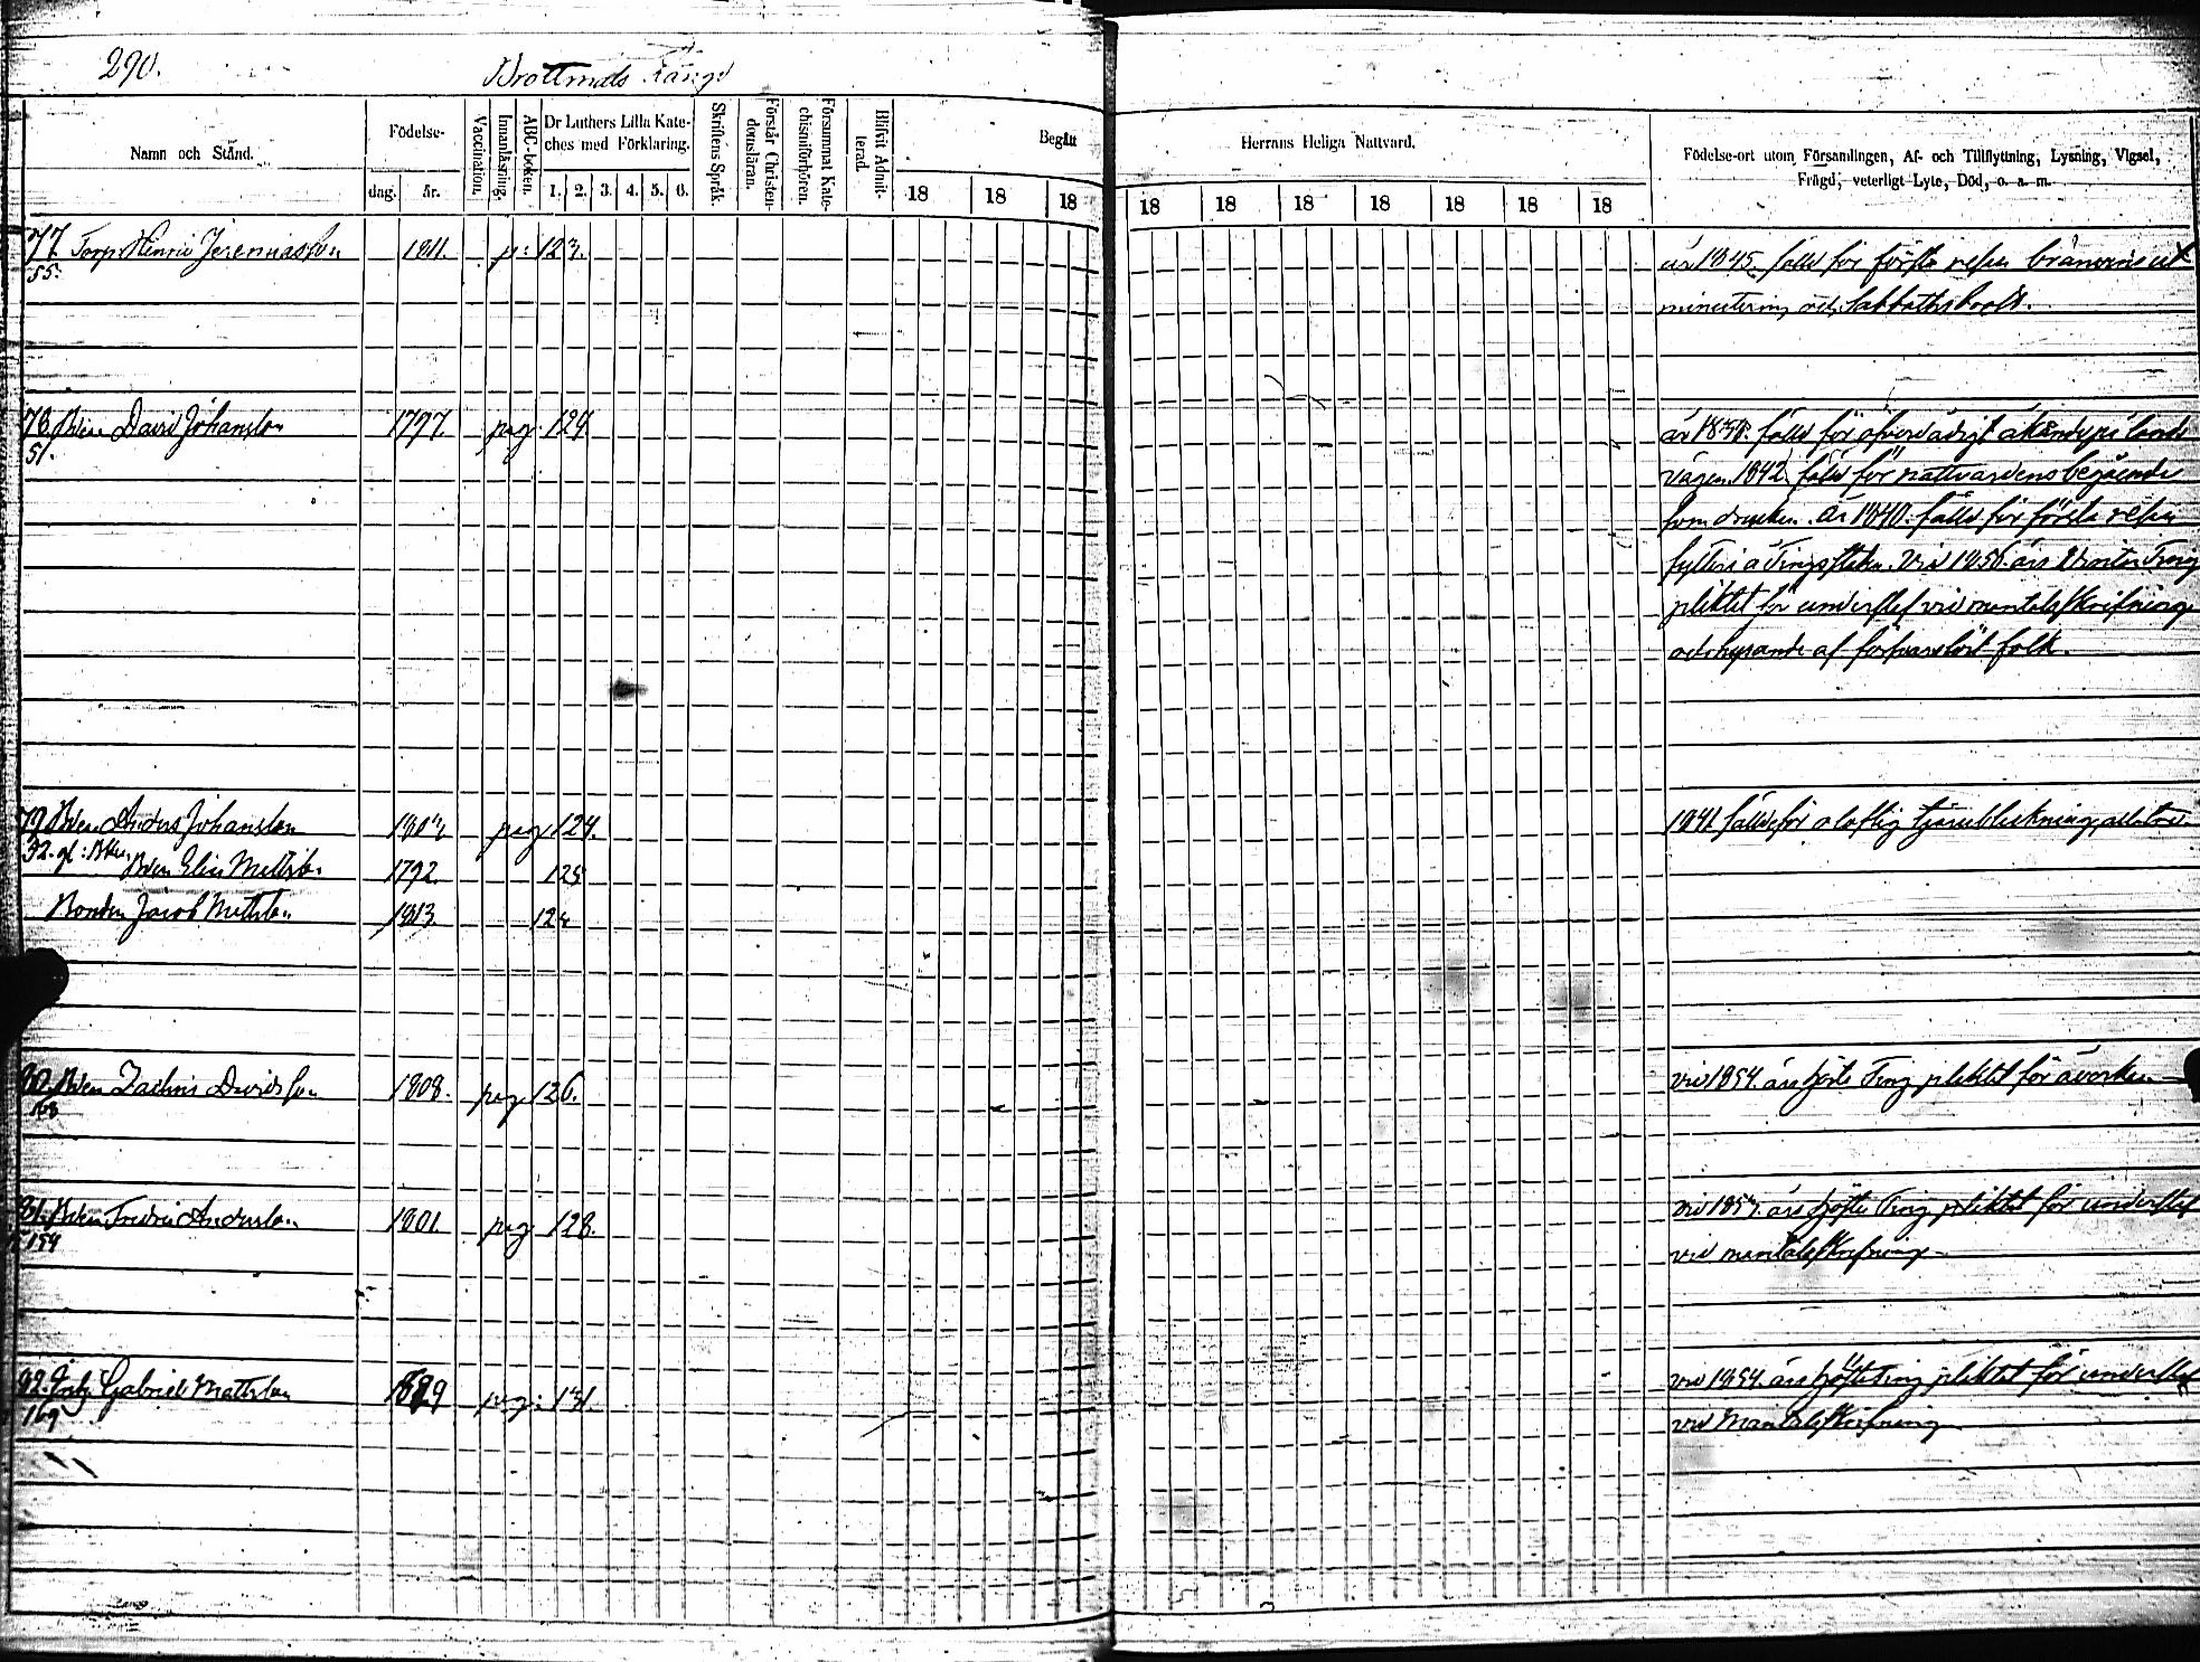 290.
Brottmåls Längd
Namn och Stånd.
Födelse-
dag.
år.
Vaccination.
Innanläsning.
ABC-boken.
Dr Luthers Lilla Kate-
ches med Förklaring.
1. 2. 3. 4. 5. 6.
Skriftens Språk.
Förstår Christen-
domsläran.
Försummat Kate-
chismiförhören.
Blifvit Admit-
terad.
Begått
18 18 18
Herrans Heliga Nattvard.
18 18 18 18 18 18 18
Födelse-ort utom Församlingen, Af- och Tillflyttning, Lysning, Vigsel,
Frägd, veterligt Lyte, Död, o. a. m.
77 Torp. Henric Jeremiasson 1811. p: 123. år 1845 fälld för första resan bränvins ut
55. minutering och Sabbathsbrott.
78. Bden David Johansson 1797. pag. 124 år fälld för öfverdådigt åkande på lands
51. vägen. 1842 fälld för nattvardens begående
som drucken. År 1840. fälld för första resan
fylleri å Tingsstället. Vid 1856 års Vinter Ting
pliktat för underslef vid mantalsskrifning
och hysande af försvarslöst folk.
79 Bden Anders Johansson 1803 pag 124. 1841 fälld för olaflig
32. Bden Elias Mattsson 1792. 125
Bonden Jacob Mattsson 1813. 124
80. Bden Zachris Davidsson 1808. pag 126. vid 1854. års höste Ting pliktat för åverkan.
168
81. Bden Fredric Andersson 1801. pag 128. vid års höste Ting pliktat för underslef
154 vid mantalsskrifning
82. Gabriel Mattsson pag: 131. vid 1854. års höste Ting pliktat för underslef
169 vid Mantalsskrifning